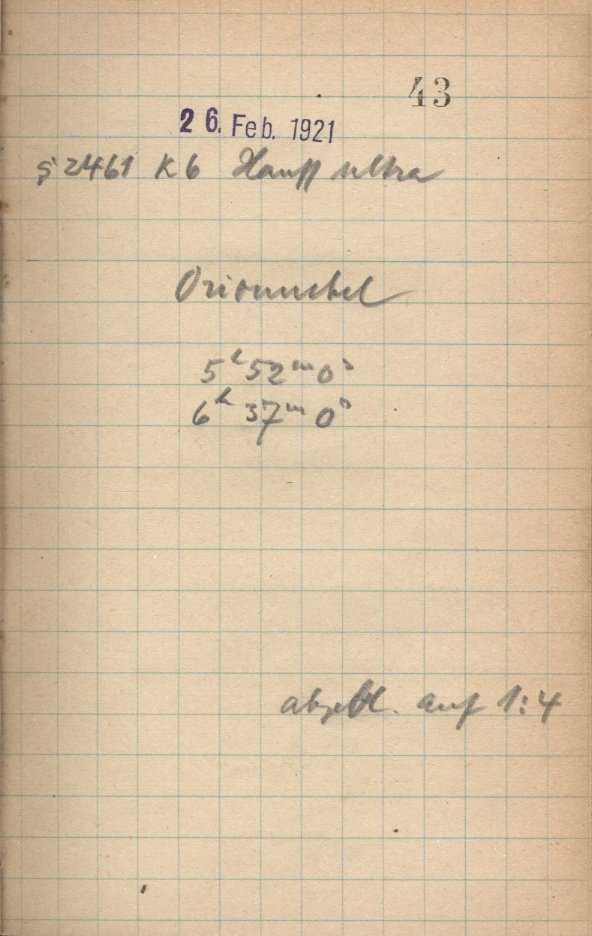 43
26. Feb. 1921
§ 2461 K6 Hauff ultra
Orionnebel
5ʰ 52ᵐ 0ˢ
6ʰ 37ᵐ 0ˢ
abgebl. auf 1:4